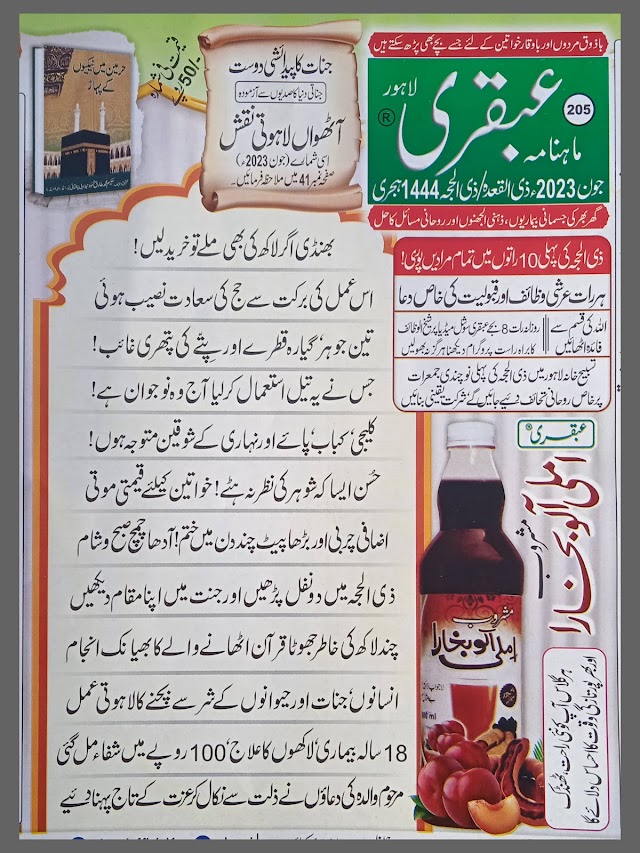 باذوق مردوں اور باوقار خواتین کے لئے جسے بچے بھی پڑھ سکتے ہیں
ماہنامہ عبقری لاہور
®
205
جون 2023ء ذی القعدہ/ذی الحجہ 1444 ہجری
گھر بھر کی جسمانی بیماریوں، ذہنی الجھنوں اور روحانی مسائل کا حل
قیمت فی شمارہ
50/-
جنات کا پیدائشی دوست
جناتی دنیا کا صدیوں سے آزمودہ
آٹھواں لاہوتی نقش
اسی شمارے (جون 2023ء)
صفحہ نمبر 41 میں ملاحظہ فرمائیں۔
حرمین میں نیکیوں
کے پہاڑ
ذی الحجہ کی پہلی 10 راتوں میں تمام مرادیں پوری!
ہر رات عرشی وظائف اور قبولیت کی خاص دعا
اللہ کی قسم سے
فائدہ اٹھائیں
روزانہ رات 8 بجے عبقری سوشل میڈیا پر شیخ الوظائف
کا براہ راست پروگرام دیکھنا ہرگز نہ بھولیں
تسبیح خانہ لاہور میں ذی الحجہ کی پہلی نوچندی جمعرات
پر خاص روحانی تحائف دیئے جائیں گے شرکت یقینی بنائیں
بھنڈی اگر لاکھ کی بھی ملے تو خرید لیں!
اس عمل کی برکت سے حج کی سعادت نصیب ہوئی
تین جو ہر گیارہ قطرے اور پتے کی پتھری غائب!
جس نے یہ تیل استعمال کرلیا آج وہ نوجوان ہے!
کلیجی، کباب، پائے اور نہاری کے شوقین متوجہ ہوں!
حسن ایسا کہ شوہر کی نظر نہ ہٹے! خواتین کیلئے قیمتی موتی
اضافی چربی اور بڑھا پیٹ چند دن میں ختم! آدھا چمچ صبح و شام
ذی الحجہ میں دو نفل پڑھیں اور جنت میں اپنا مقام دیکھیں
چند لاکھ کی خاطر جھوٹا قرآن اٹھانے والے کا بھیانک انجام
انسانوں، جنات اور حیوانوں کے شر سے بچنے کا لاہوتی عمل
18 سالہ بیماری، لاکھوں کا علاج، 100 روپے میں شفاء مل گئی
مرحوم والدہ کی دعاؤں نے ذلت سے نکال کر عزت کے تاج پہنا دیئے
عبقری®
املی آلو بخارا
مشروب
مشروب
املی آلو بخارا
800 ml
ہر گلاس آپ کو دے راحت، ٹھنڈک
اور بھرپور تازگی و قوت کا احساس دلائے گا